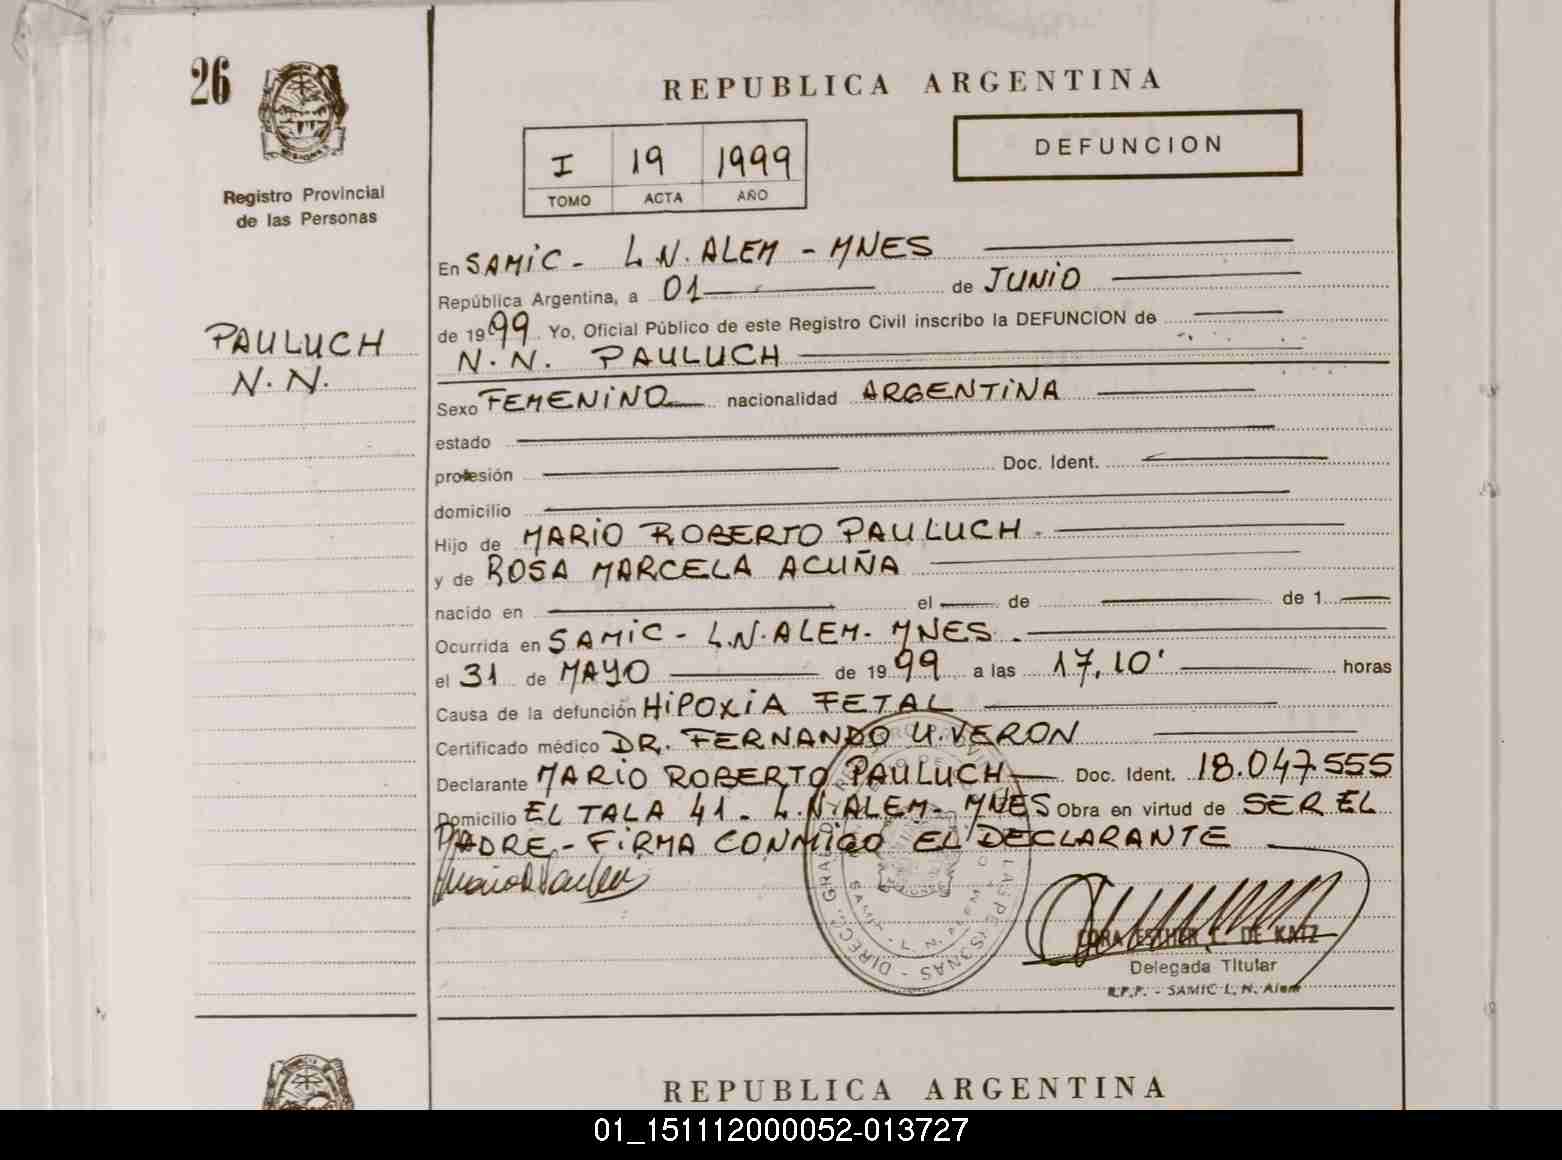 26
REPUBLICA ARGENTINA
DEFUNCION
I 19 1999
TOMO ACTA AÑO
Registro Provincial
de las Personas
PAULUCH
N.N.
En SAMIC - L.N. ALEM - MNES
República Argentina, a 01 de JUNIO
de 1999 Yo, Oficial Público de este Registro Civil inscribo la DEFUNCION de
N.N. PAULUCH
Sexo FEMENINO nacionalidad ARGENTINA
estado
profesión Doc. Ident.
domicilio
Hijo de MARIO ROBERTO PAULUCH
y de ROSA MARCELA ACUÑA
nacido en el de de 1
Ocurrida en SAMIC - L.N. ALEM - MNES
el 31 de MAYO de 1999 a las 17,10' horas
Causa de la defunción HIPOXIA FETAL
Certificado médico DR. FERNANDO U. VERON
Declarante MARIO ROBERTO PAULUCH Doc. Ident. 18.047.555
Domicilio EL TALA 41 - L.N. ALEM - MNES Obra en virtud de SER EL
PADRE - FIRMA CONMIGO EL DECLARANTE
SAMIC - L. N. ALEM
ESTHER DE KATZ
Delegada Titular
R.P.P. - SAMIC L. N. Alem
REPUBLICA ARGENTINA
01_151112000052-013727